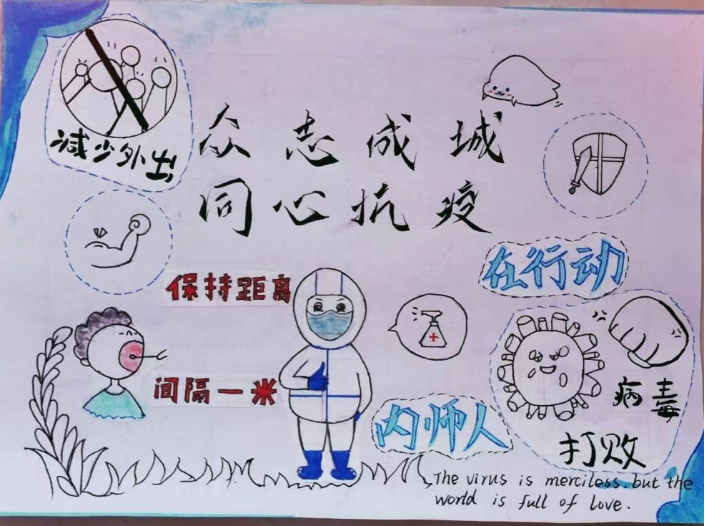 减少外出
众志成城
同心抗疫
保持距离
在行动
间隔一米
内师人
病毒
打败
The virus is merciless. but the
world is full of love.